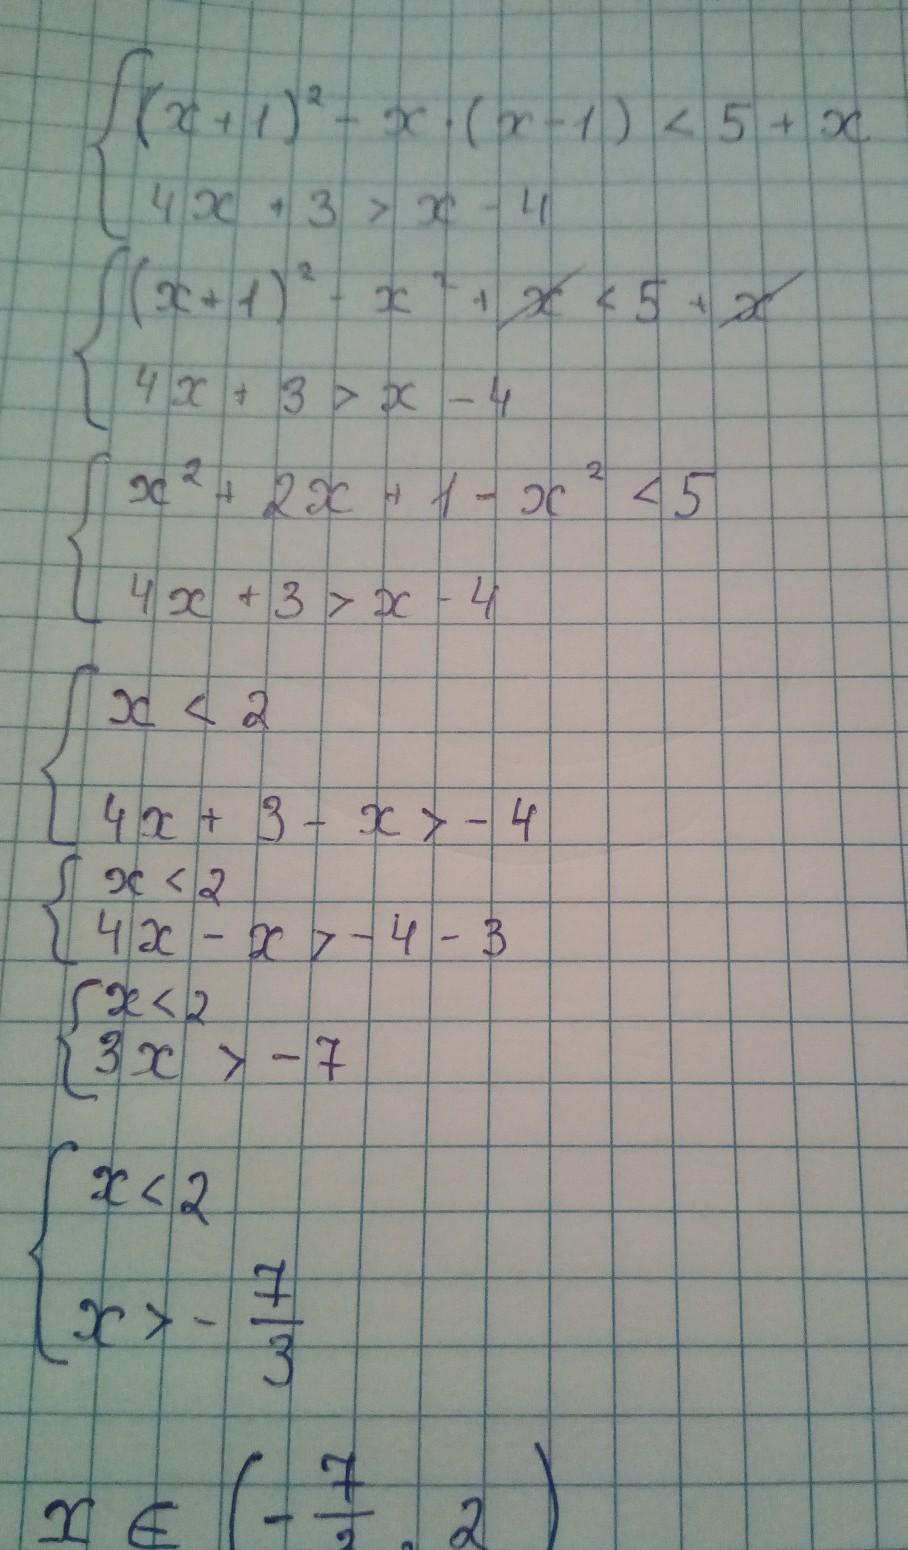 (x+1)² - x·(x-1) < 5 + x
4x + 3 > x - 4
(x+1)² - x² + x < 5 + x
4x + 3 > x - 4
x² + 2x + 1 - x² < 5
4x + 3 > x - 4
x < 2
4x + 3 - x > -4
x < 2
4x - x > -4 - 3
x < 2
3x > -7
x < 2
x > - 7/3
x ∈ (- 7/3, 2)